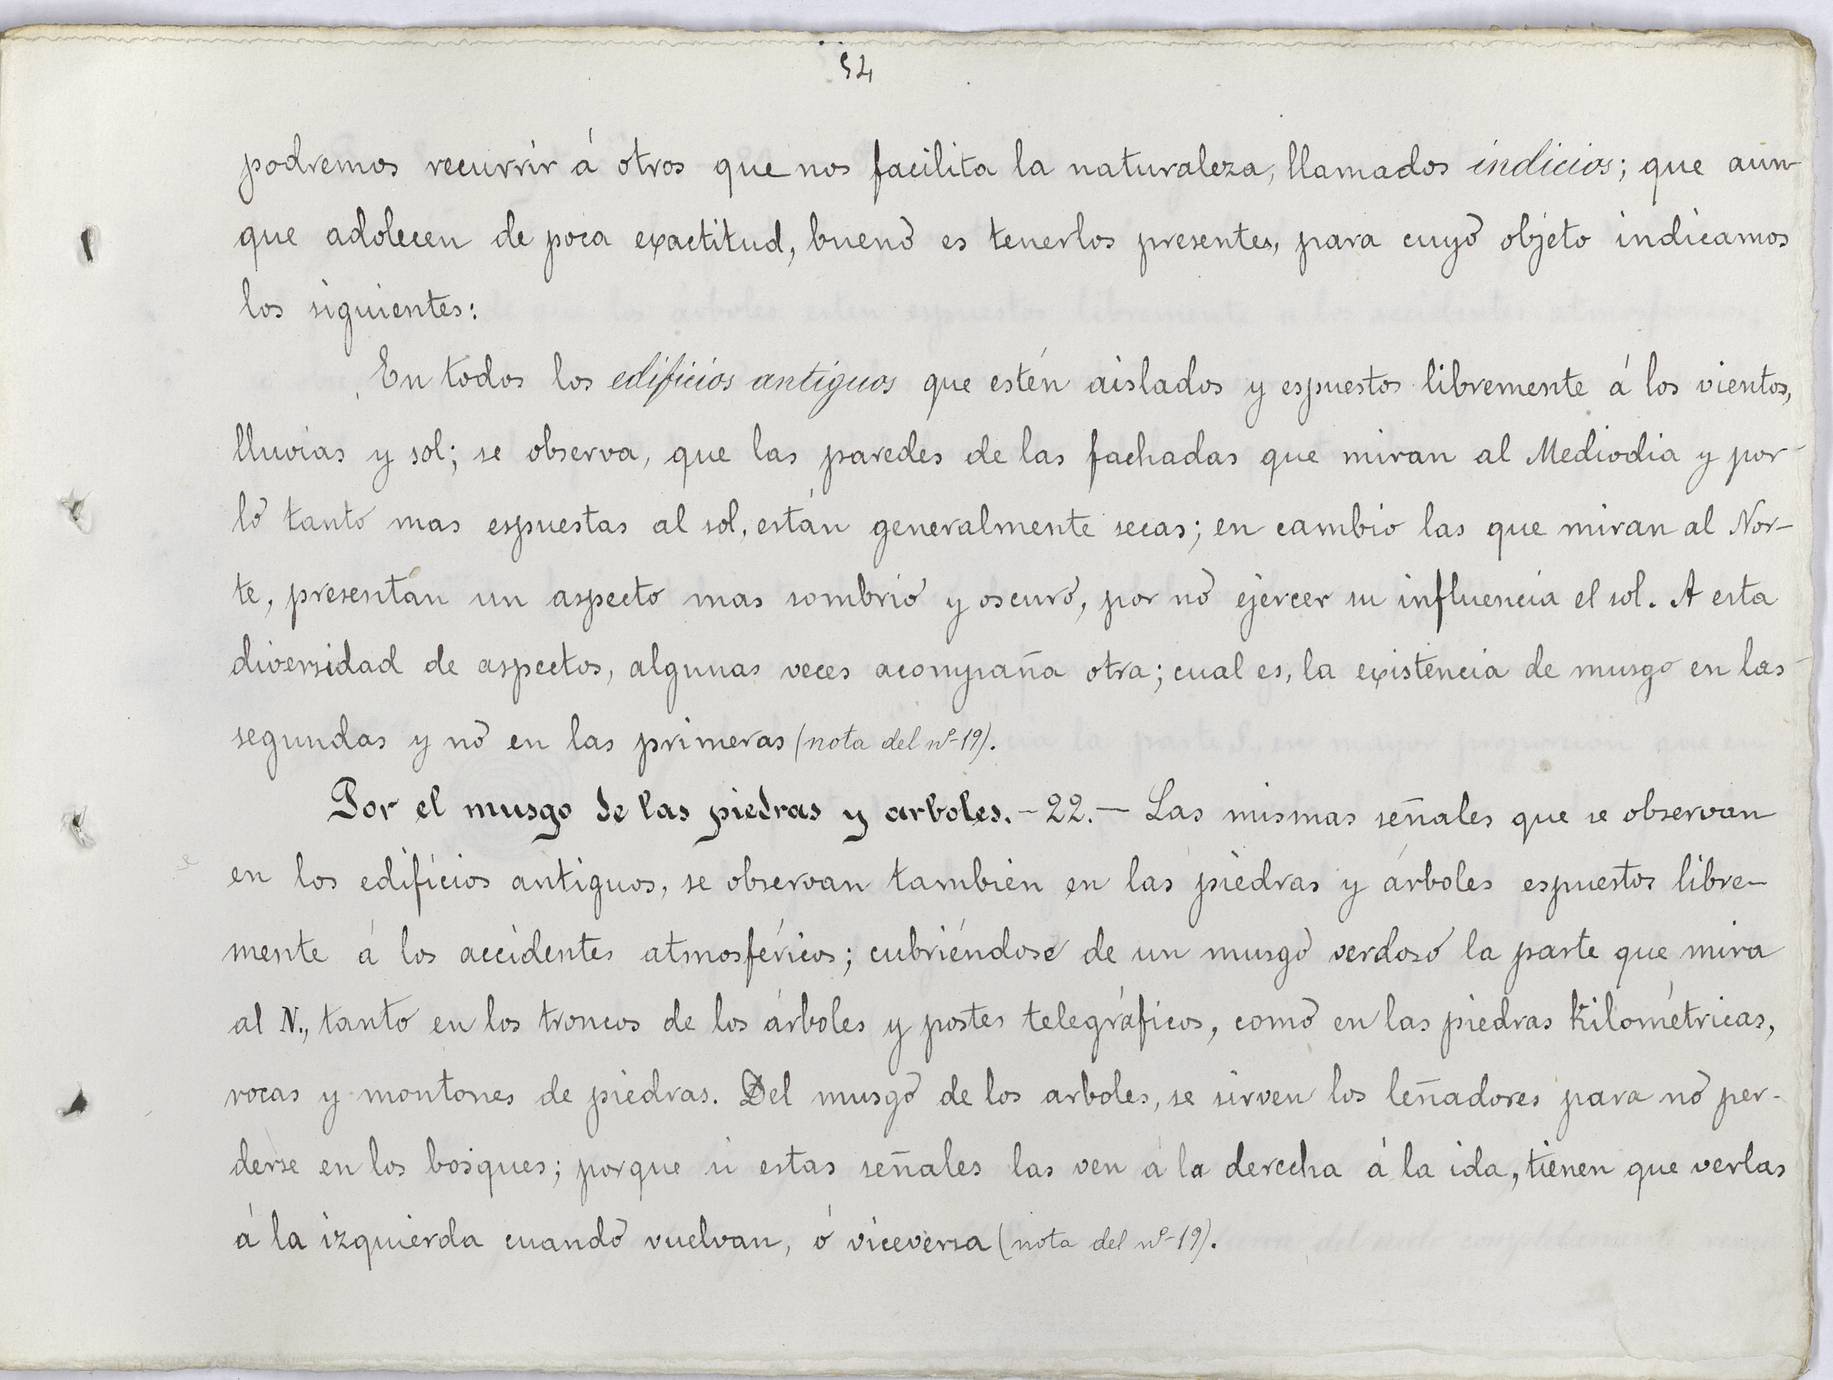 54
podremos recurrir á otros que nos facilita la naturaleza, llamados indicios; que aun-
que adolecen de poca exactitud, bueno es tenerlos presentes, para cuyo objeto indicamos
los siguientes:
En todos los edificios antiguos que estén aislados y espuestos libremente á los vientos,
lluvias y sol; se observa, que las paredes de las fachadas que miran al Mediodia y por
lo tanto mas espuestas al sol, están generalmente secas; en cambio las que miran al Nor-
te, presentan un aspecto mas sombrio y oscuro, por no ejercer su influencia el sol. A esta
diversidad de aspectos, algunas veces acompaña otra; cual es, la existencia de musgo en las
segundas y no en las primeras (nota del nº 19).
Por el musgo de las piedras y arboles. - 22. - Las mismas señales que se observan
en los edificios antiguos, se observan también en las piedras y árboles espuestos libre-
mente á los accidentes atmosféricos; cubriéndose de un musgo verdoso la parte que mira
al N., tanto en los troncos de los árboles y postes telegráficos, como en las piedras kilométricas,
rocas y montones de piedras. Del musgo de los arboles, se sirven los leñadores para no per-
derse en los bosques; porque si estas señales las ven á la derecha á la ida, tienen que verlas
á la izquierda cuando vuelvan, ó viceversa (nota del nº 19).